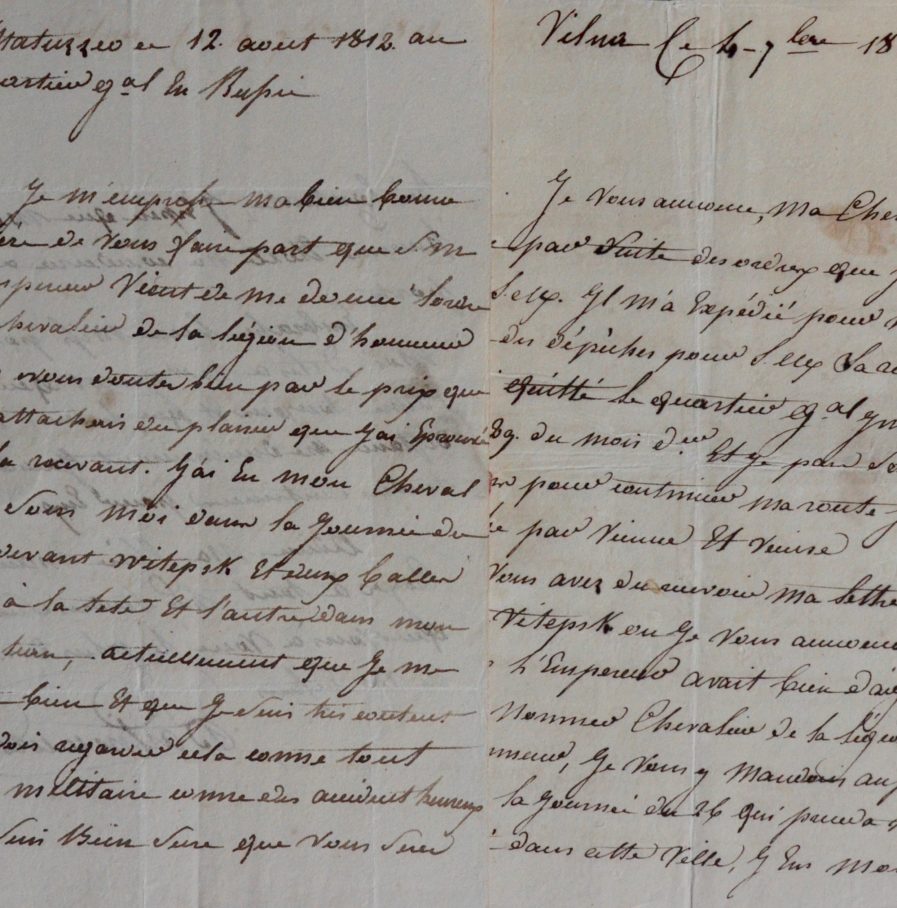 12. aout 1812. au
artier gal En Russie
Je m'empresse ma bien bonne
ère de Vous faire part que S. M
mpereur Vient de me donner l'ordre
chevalier de la légion d'honneur
vous douter bien par le prix que
attachais du plaisir que j'ai Eprouvé
la recevant. J'ai Eu mon Cheval
sous Moi dans la Journée du
devant Witepsk Et deux balles
à la tete Et l'autre dans mon
actuellement que Je me
bien Et que Je Suis très content
dois regarder cela comme tout
militaire comme des accident heureux
Suis Bien Sure que Vous Serez
Vilna Ce 4-7bre 18
Je Vous annonce, Ma Cher
par Suite des ordres que
S. Ex. Il M'a Expédié pour
des dépêches pour S. Ex
quitté le quartier gal
29. du mois der. Et Je pars
pour continuer ma route
par Vienne Et Venise
Vous avez du recevoir Ma lettre
Vitepsk ou Je Vous annonc
L'Empereur avait bien d'ai
Nommer Chevalier de la légio
nneur, Je Vous y Mandais au
la Journée du 26 qui
dans cette Ville, J'Eus Mo